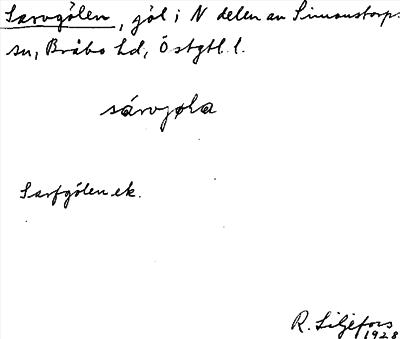 Sarvgölen, göl i N delen av Simonstorps
sn, Bråbo hd, Östgtl. l.
sárvjøla
Sarfgölen ek.
R. Liljefors
1928